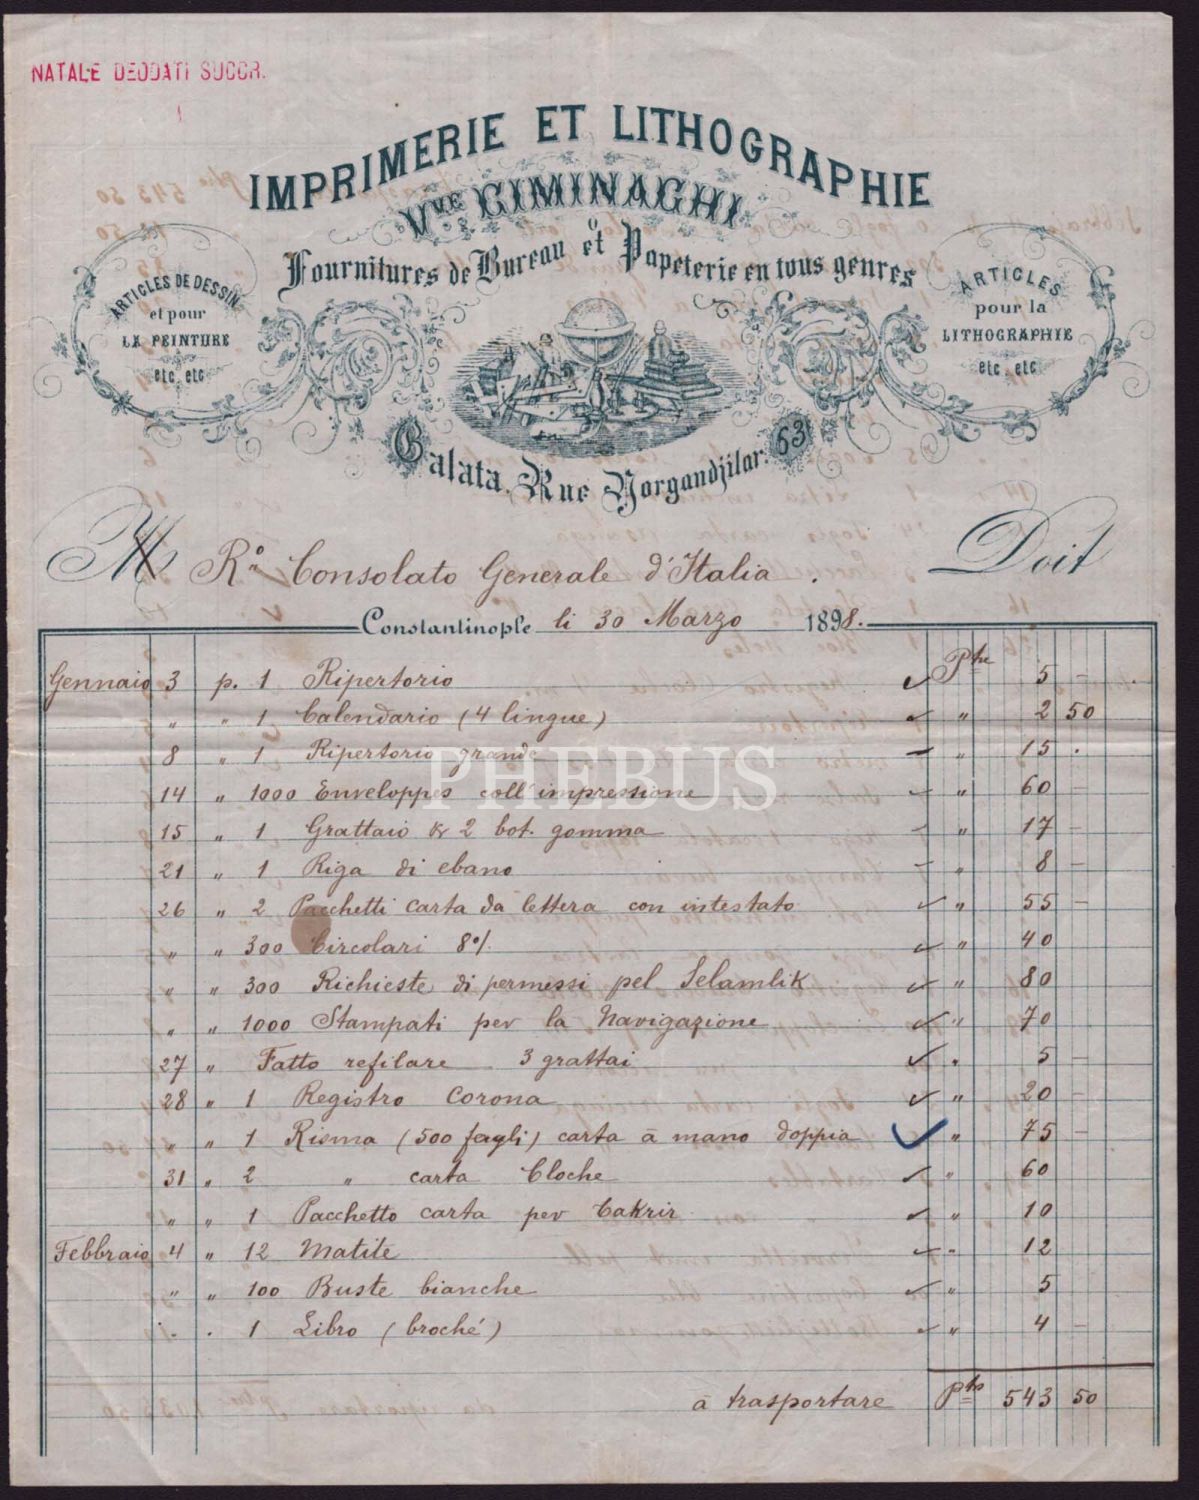 NATALE DEODATI SUCCR.
IMPRIMERIE ET LITHOGRAPHIE
Vve CIMINAGHI
Fournitures de Bureau et Papeterie en tous genres
ARTICLES DE DESSIN
et pour
LA PEINTURE
etc. etc.
ARTICLES
pour la
LITHOGRAPHIE
etc. etc.
Galata, Rue Yorgandjilar. 63
M R.º Consolato Generale d'Italia. Doit
Constantinople li 30 Marzo 1898.
Gennaio 3 p. 1 Ripertorio Ptre 5 —
" " 1 Calendario (4 lingue) " 2 50
8 " 1 Ripertorio grande " 15 .
14 " 1000 Enveloppes coll'impressione " 60 —
15 " 1 Grattaio & 2 bot. gomma " 17 —
21 " 1 Riga di ebano " 8 —
26 " 2 Pacchetti carta da lettera con intestato " 55 —
" " 300 Circolari 8º/. " 40
" " 300 Richieste di permessi pel Selamlik " 80
" " 1000 Stampati per la Navigazione " 70
27 " Fatto refilare 3 grattai " 5 —
28 " 1 Registro Corona " 20 —
" " 1 Risma (500 fogli) carta a mano doppia " 75 —
31 " 2 " carta Cloche " 60
" " 1 Pacchetto carta per Takrir " 10
Febbraio 4 " 12 Matite " 12
" " 100 Buste bianche " 5
" . 1 Libro (broché) " 4 —
a trasportare Pts 543 50
PHEBUS